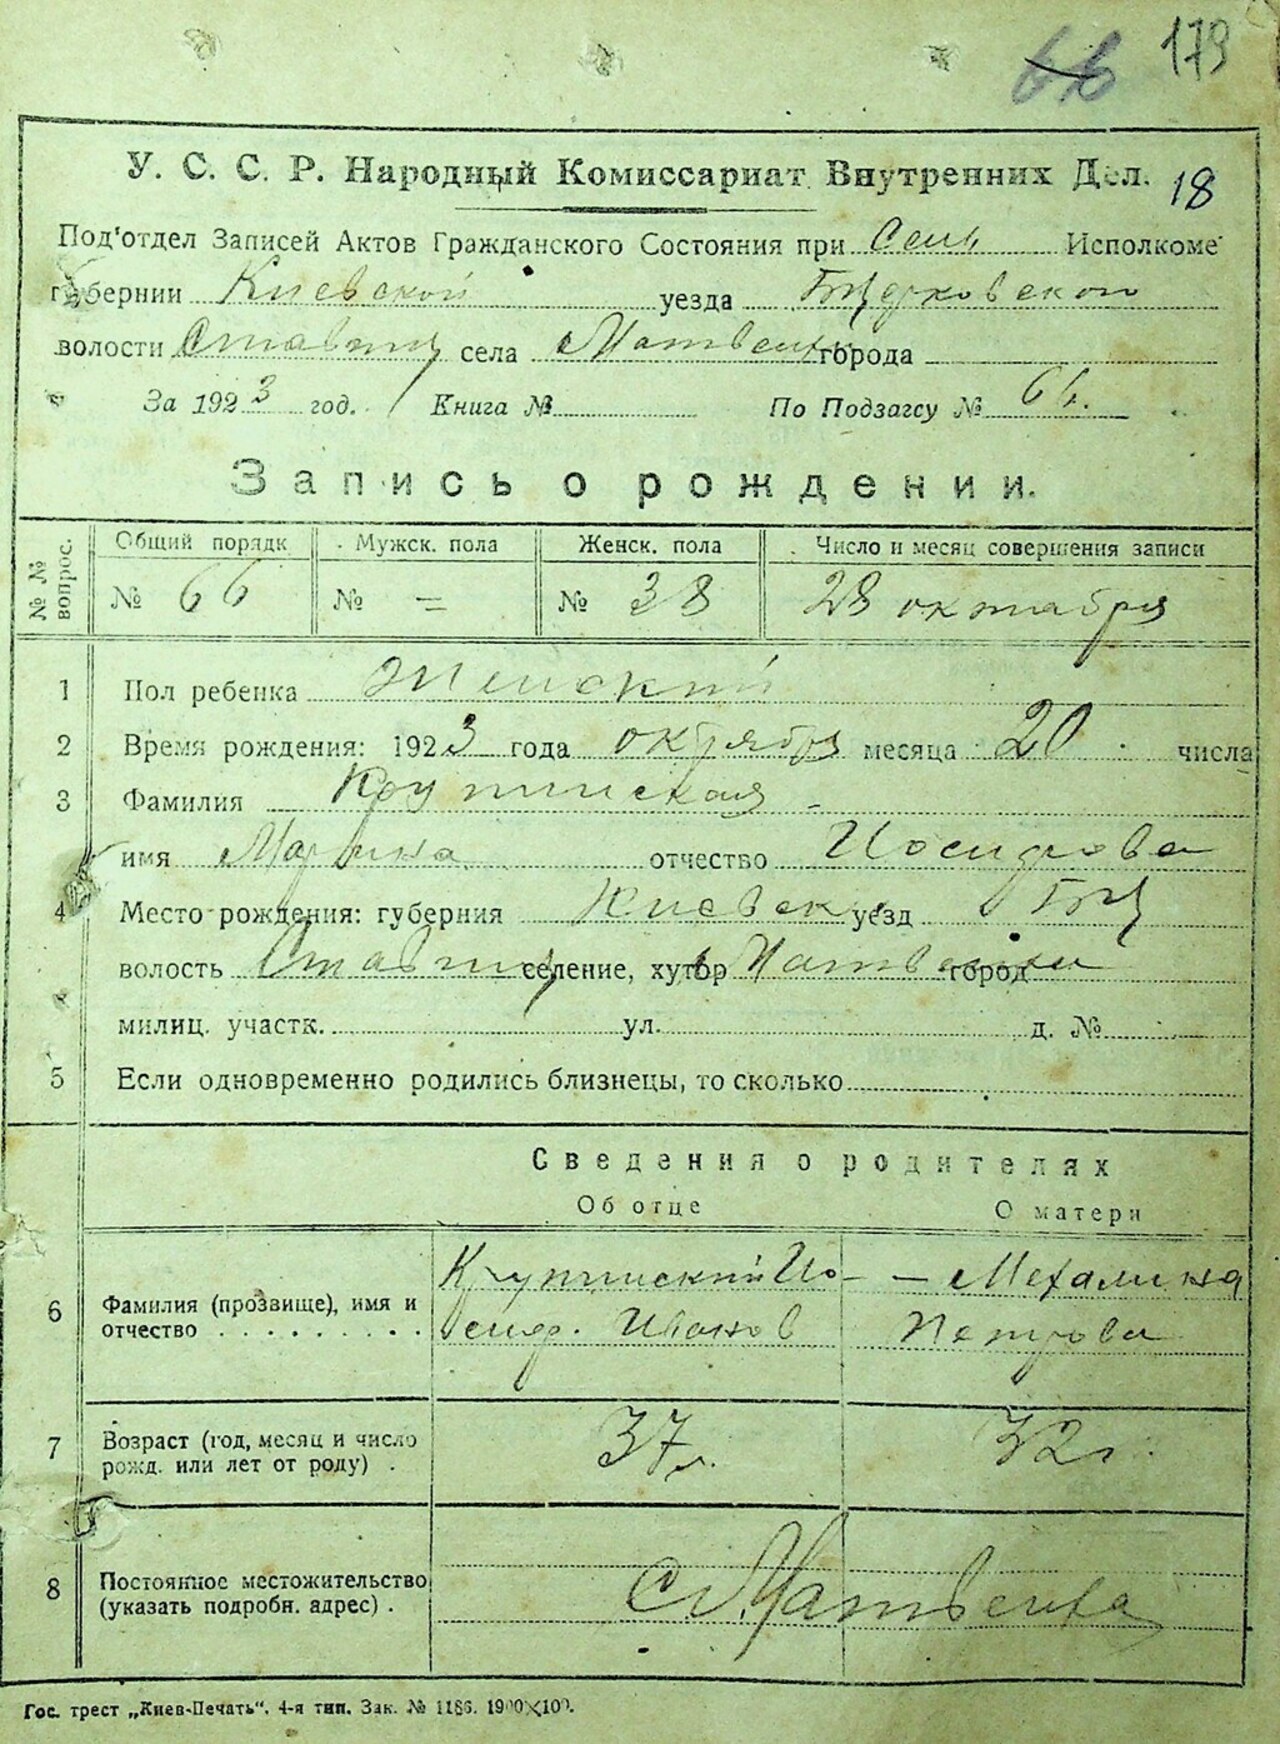 66 179
У. С. С. Р. Народный Комиссариат Внутренних Дел. 18
Под'отдел Записей Актов Гражданского Состояния при Сель Исполкоме
губернии Киевской уезда Бцерковской
волости Ставищ села Матвеихи города
За 1923 год. Книга № По Подзагсу № 66.
Запись о рождении.
№ № вопрос. Общий порядк Мужск. пола Женск. пола Число и месяц совершения записи
№ 66 № = № 38 28 октября
1 Пол ребенка Женский
2 Время рождения: 1923 года октября месяца 20 числа
3 Фамилия Крупинская
имя Марина отчество Иосифова
4 Место рождения: губерния Киевск уезд БЦ
волость Ставищ селение, хутор Матвеихи город
милиц. участк. ул. д. №
5 Если одновременно родились близнецы, то сколько
Сведения о родителях
Об отце О матери
6 Фамилия (прозвище), имя и Крупинский Ио- - Мехалина
отчество сиф. Иванов Петрова
7 Возраст (год, месяц и число 37 л. 32 г.
рожд. или лет от роду)
8 Постоянное местожительство С. Матвеиха
(указать подробн. адрес).
Гос. трест „Киев-Печать“. 4-я тип. Зак. № 1186. 1900×100.